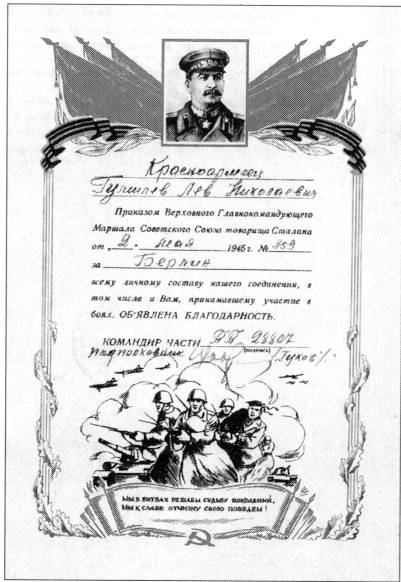 Красноармеец
Гумилев Лев Николаевич
Приказом Верховного Главнокомандующего
Маршала Советского Союза товарища Сталина
от 2 мая 1945 г. № 359
за Берлин
всему личному составу нашего соединения, в
том числе и Вам, принимавшему участие в
боях, ОБ'ЯВЛЕНА БЛАГОДАРНОСТЬ.
КОМАНДИР ЧАСТИ ПП 28807
подполковник (подпись)
МЫ В БИТВАХ РЕШАЕМ СУДЬБУ ПОКОЛЕНИЙ,
МЫ К СЛАВЕ ОТЧИЗНУ СВОЮ ПОВЕДЕМ!